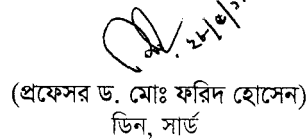 (প্রফেসর ড. মোঃ ফরিদ হোসেন)
ডিন, সার্ড